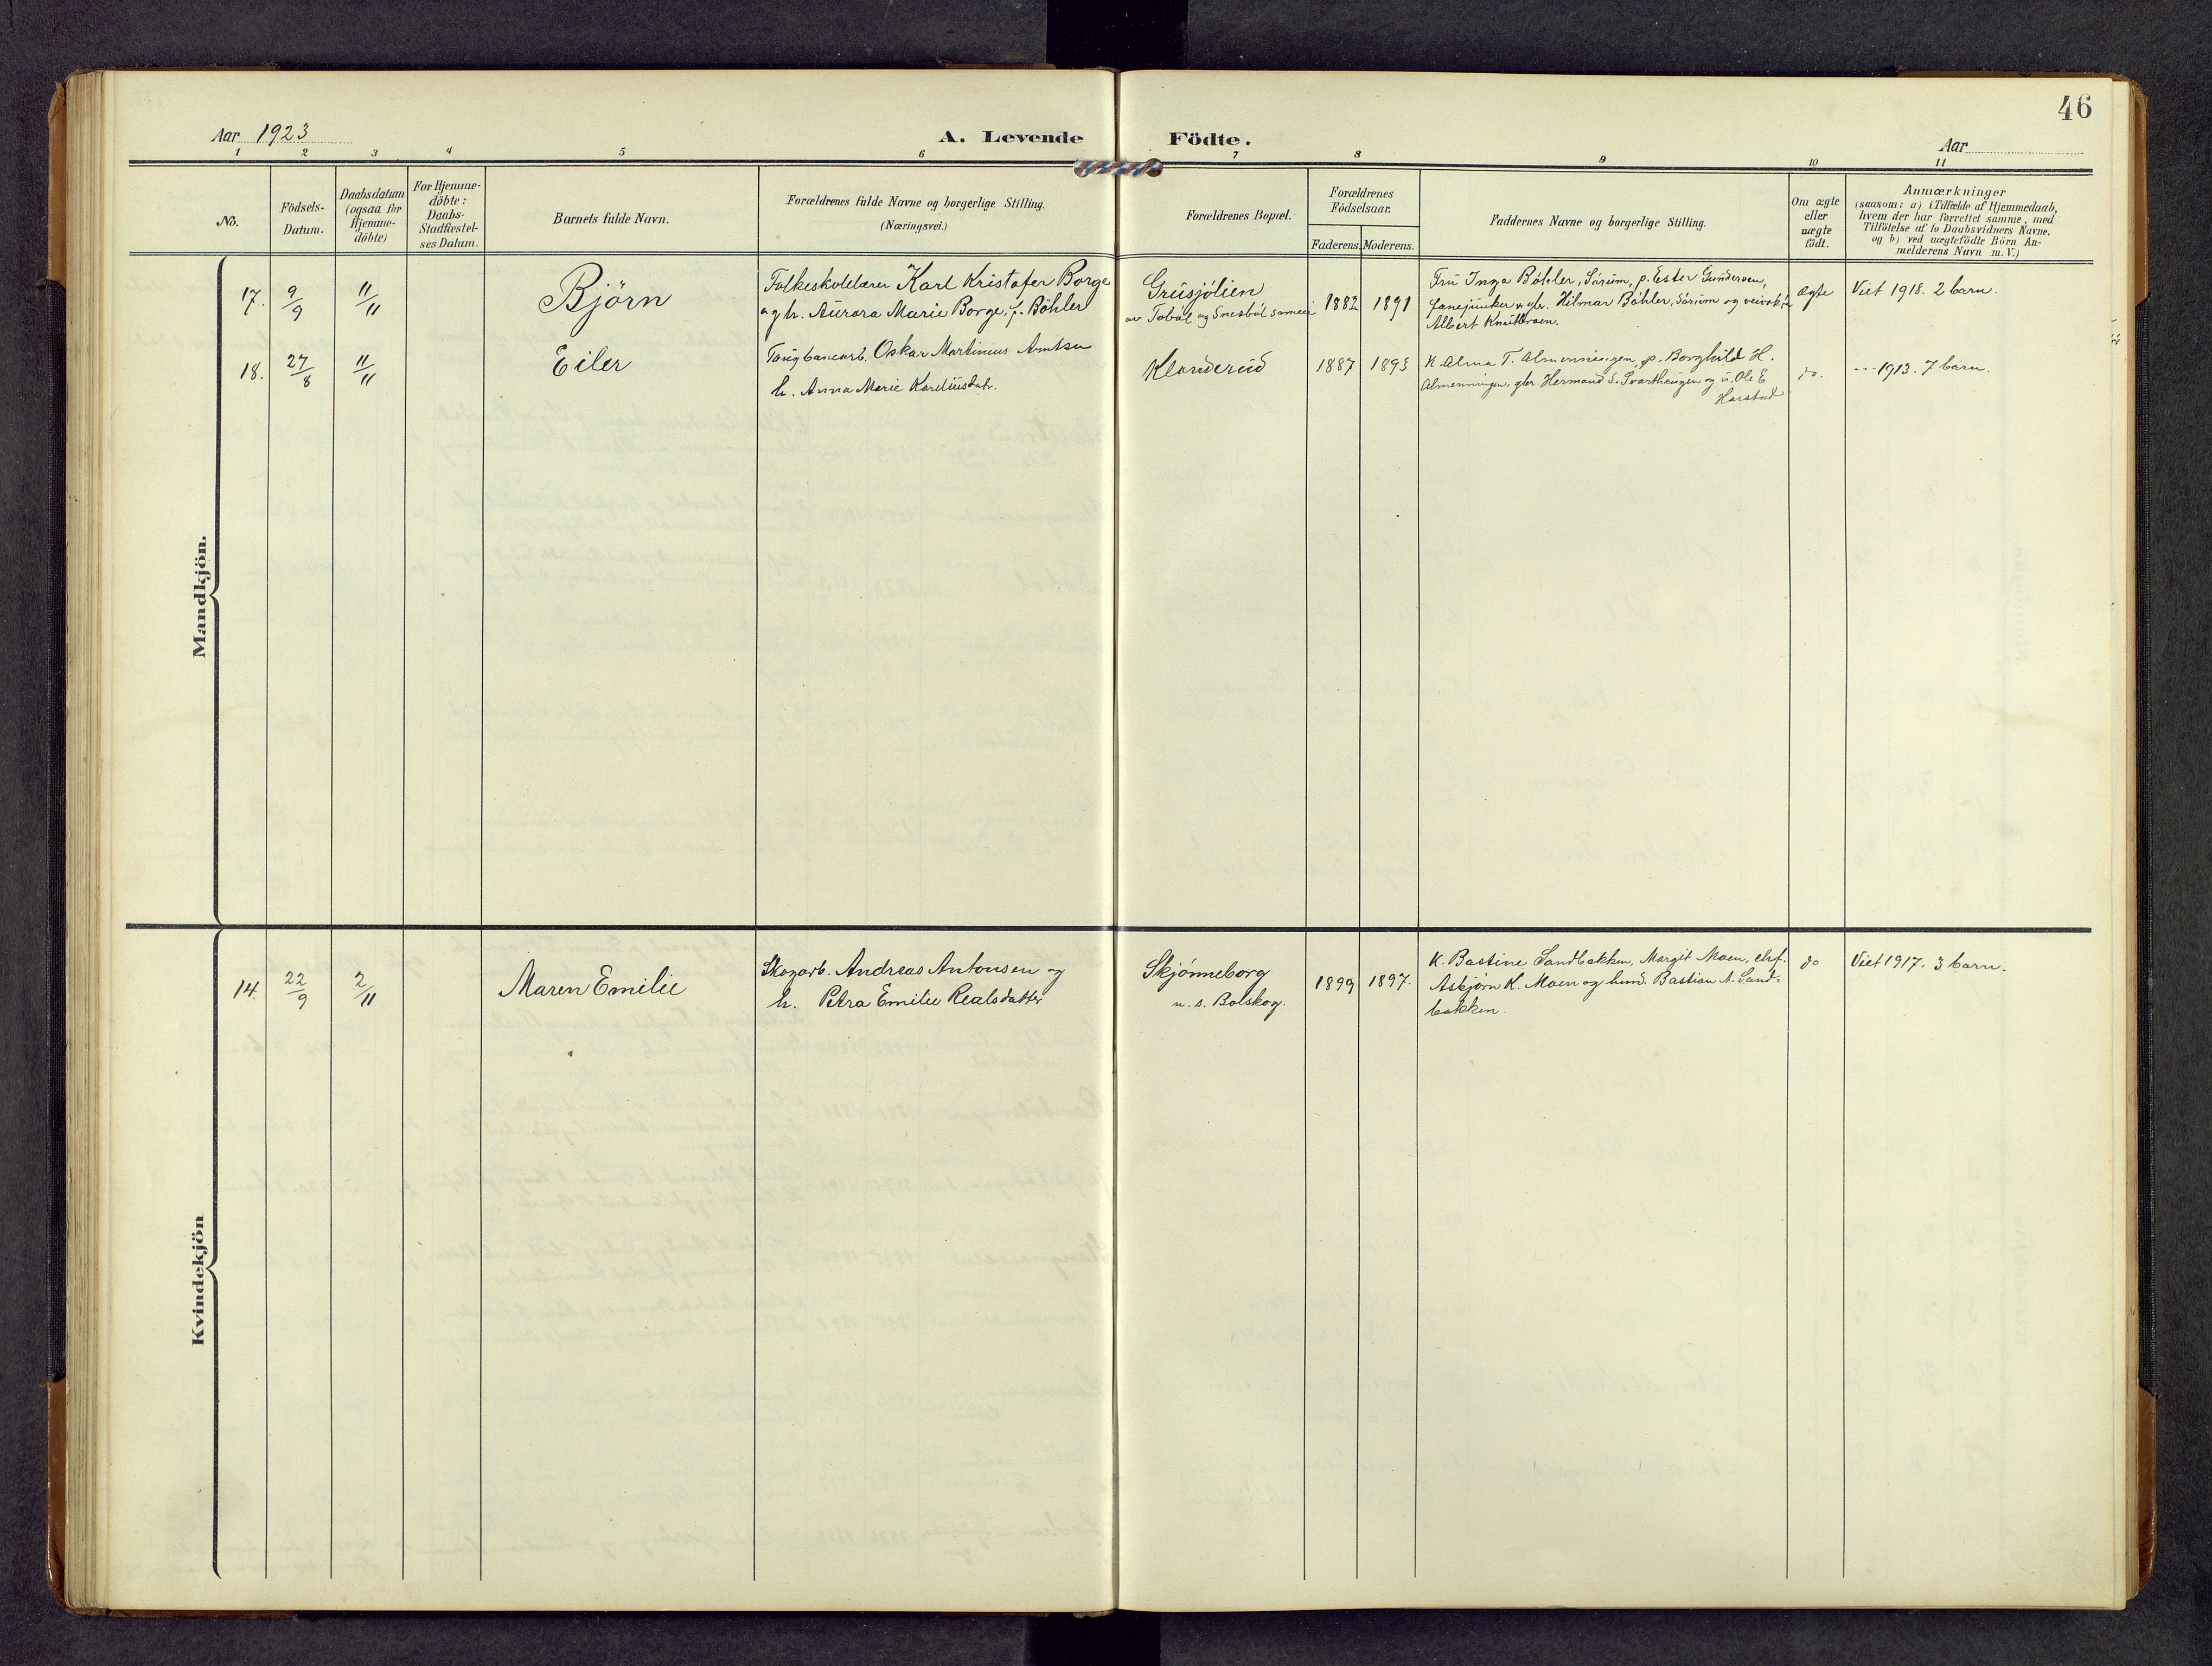 46
Aar 1923
A. Levende Födte.
Aar
1 2 3 4 5 6 7 8 9 10 11
No.
Födsels-
Datum.
Daabsdatum
(ogsaa for
Hjemme-
döbte)
For Hjemme-
döbte:
Daabs-
Stadfæstel-
ses Datum.
Barnets fulde Navn.
Forældrenes fulde Navne og borgerlige Stilling.
(Næringsvei.)
Forældrenes Bopæl.
Forældrenes
Födselsaar.
Faderens. Moderens.
Faddernes Navne og borgerlige Stilling.
Om ægte
eller
uægte
födt.
Anmærkninger
(saasom: a) i Tilfælde af Hjemmedaab,
hvem der har forrettet samme, med
Tilföielse af to Daabsvidners Navne.
og b) ved uægtefödte Börn An-
melderens Navn m. V.)
Mandkjön.
17. 9/9 11/11 Björn
Folkeskolelærer Karl Kristofer Borge
og h. Aurora Marie Borge, f. Böhler
Grusjölien
av Tobøl og Snesbøl sameie
1882 1891
Fru Inga Böhler, Sørum, p. Ester Gundersen,
Fanejunker gbr. Hilmar Böhler, Sørum og
Albert Knutbraaen.
Ægte
Viet 1918. 2 barn.
18. 27/8 11/11 Eiler
Taugbanearb. Oskar Martinius Amtsen
h. Anna Marie Kareliusdatr.
Klanderud
1887 1893
K. Alma T. Almenningen, p. Borghild H.
Almenningen, gbr. Hermand S. Svarthaugen og u. Ole E
Harstad
do.
--- 1913. 7 barn.
Kvindekjön
14. 22/9 2/11 Maren Emilie
Skogarb. Andreas Antonsen og
h. Petra Emilie Realsdatter
Skjönneborg
u. s. Bolskog.
1899 1897.
K. Bastine Sandbakken, Margit Moen, chf.
Asbjørn K. Moen og husm. Bastian A. Sand-
bakken.
do
Viet 1917. 3 barn.